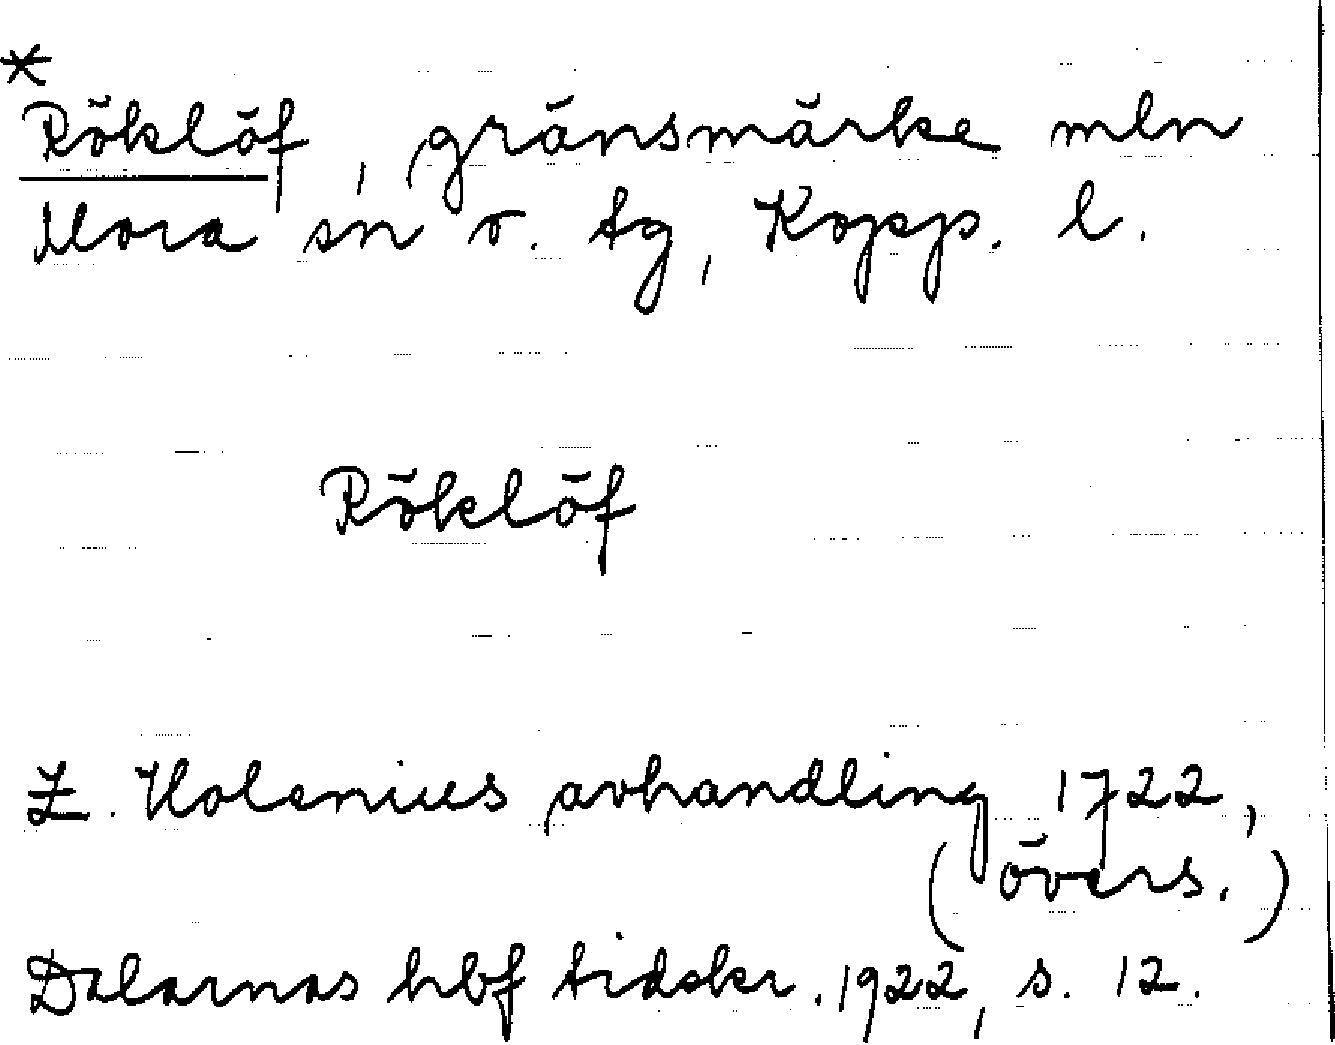 *
Röklöf, gränsmärke mln
Mora sn o. tg, Kopp. l.
Röklöf
Z. Holenius avhandling 1722,
(övers.)
Dalarnas hbf tidskr. 1922, s. 12.